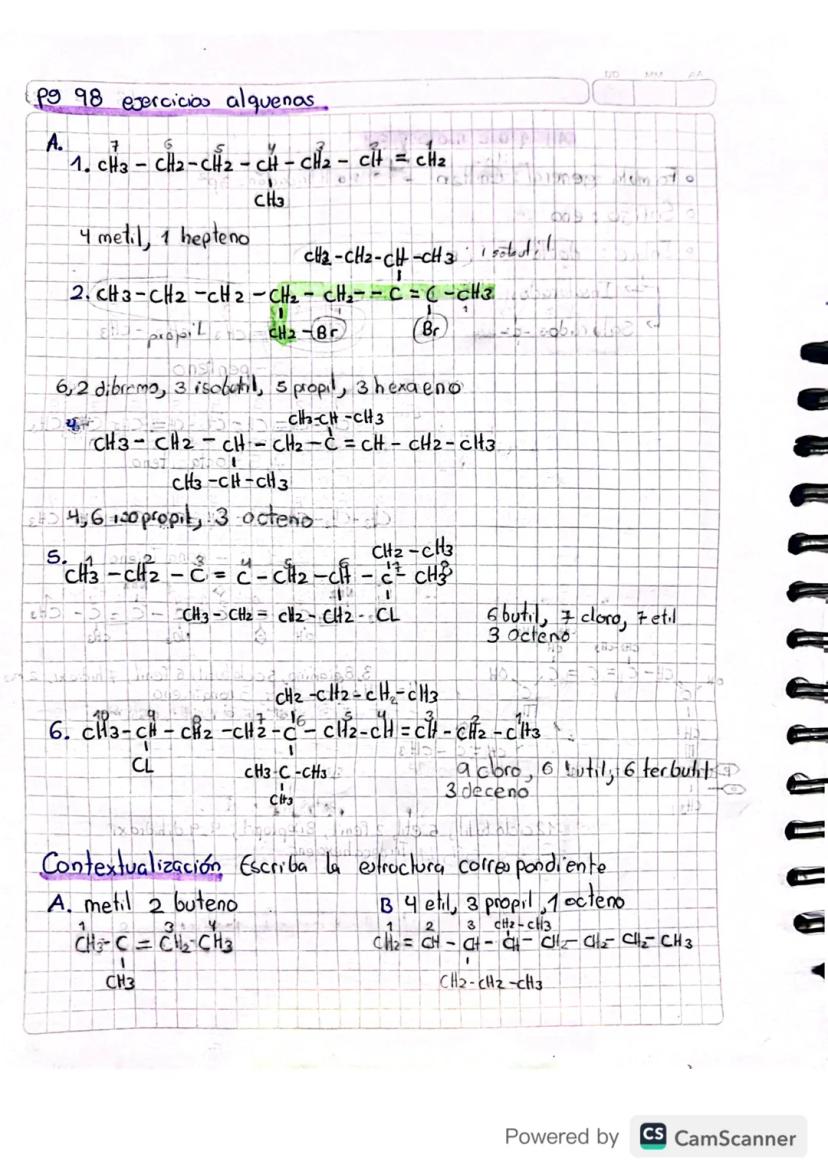 pg 98 ejercicios alquenos
A.
7 6 5 4 3 2 1
1. CH3 - CH2 - CH2 - CH - CH2 - CH = CH2
CH3
4 metil, 1 hepteno
CH2-CH2-CH-CH3 isobutil
2. CH3-CH2-CH2-CH2-CH2--C=C-CH3
propil CH2-Br Br
6,2 dibromo, 3 isobutil, 5 propil, 3 hexaeno
CH3-CH-CH3
4. CH3- CH2 - CH - CH2-C=CH-CH2-CH3
CH3-CH-CH3
4,6 isopropil, 3 octeno
CH2-CH3
1 2 3 4 5 6 7 8
5. CH3-CH2-C=C-CH2-CH-C-CH3
CH3-CH2=CH2-CH2- CL
6 butil, 7 cloro, 7 etil
3 octeno
CH2-CH2-CH2-CH3
10 9 8 7 6 5 4 3 2 1
6. CH3-CH-CH2-CH2-C-CH2-CH=CH-CH2-CH3
CL CH3-C-CH3
CH3
9 cloro, 6 butil, 6 terbutil
3 deceno
Contextualización Escriba la estructura correspondiente
A. metil 2 buteno
1 3 4
CH3-C=CH2-CH3
CH3
B 4 etil, 3 propil, 1 octeno
1 2 3 CH2-CH3
CH2=CH-CH-CH-CH2-CH2-CH2-CH3
CH2-CH2-CH3
Powered by CS CamScanner